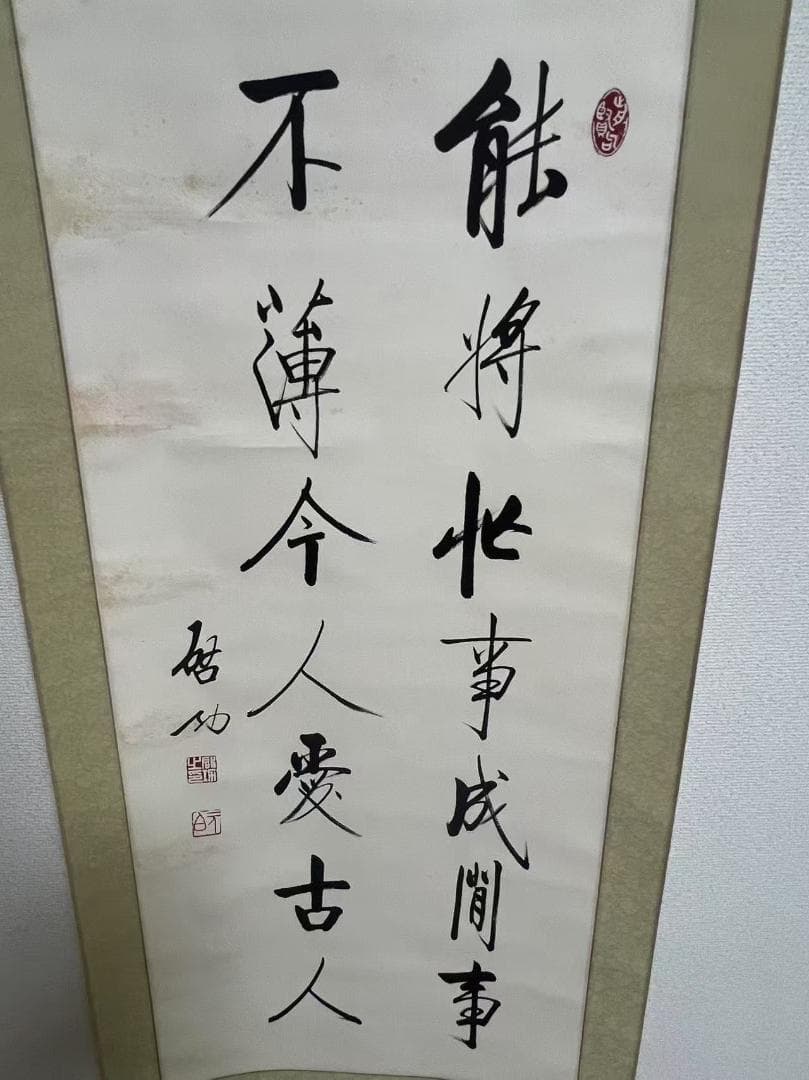 能將忙事成閒事
不薄今人愛古人
啓功